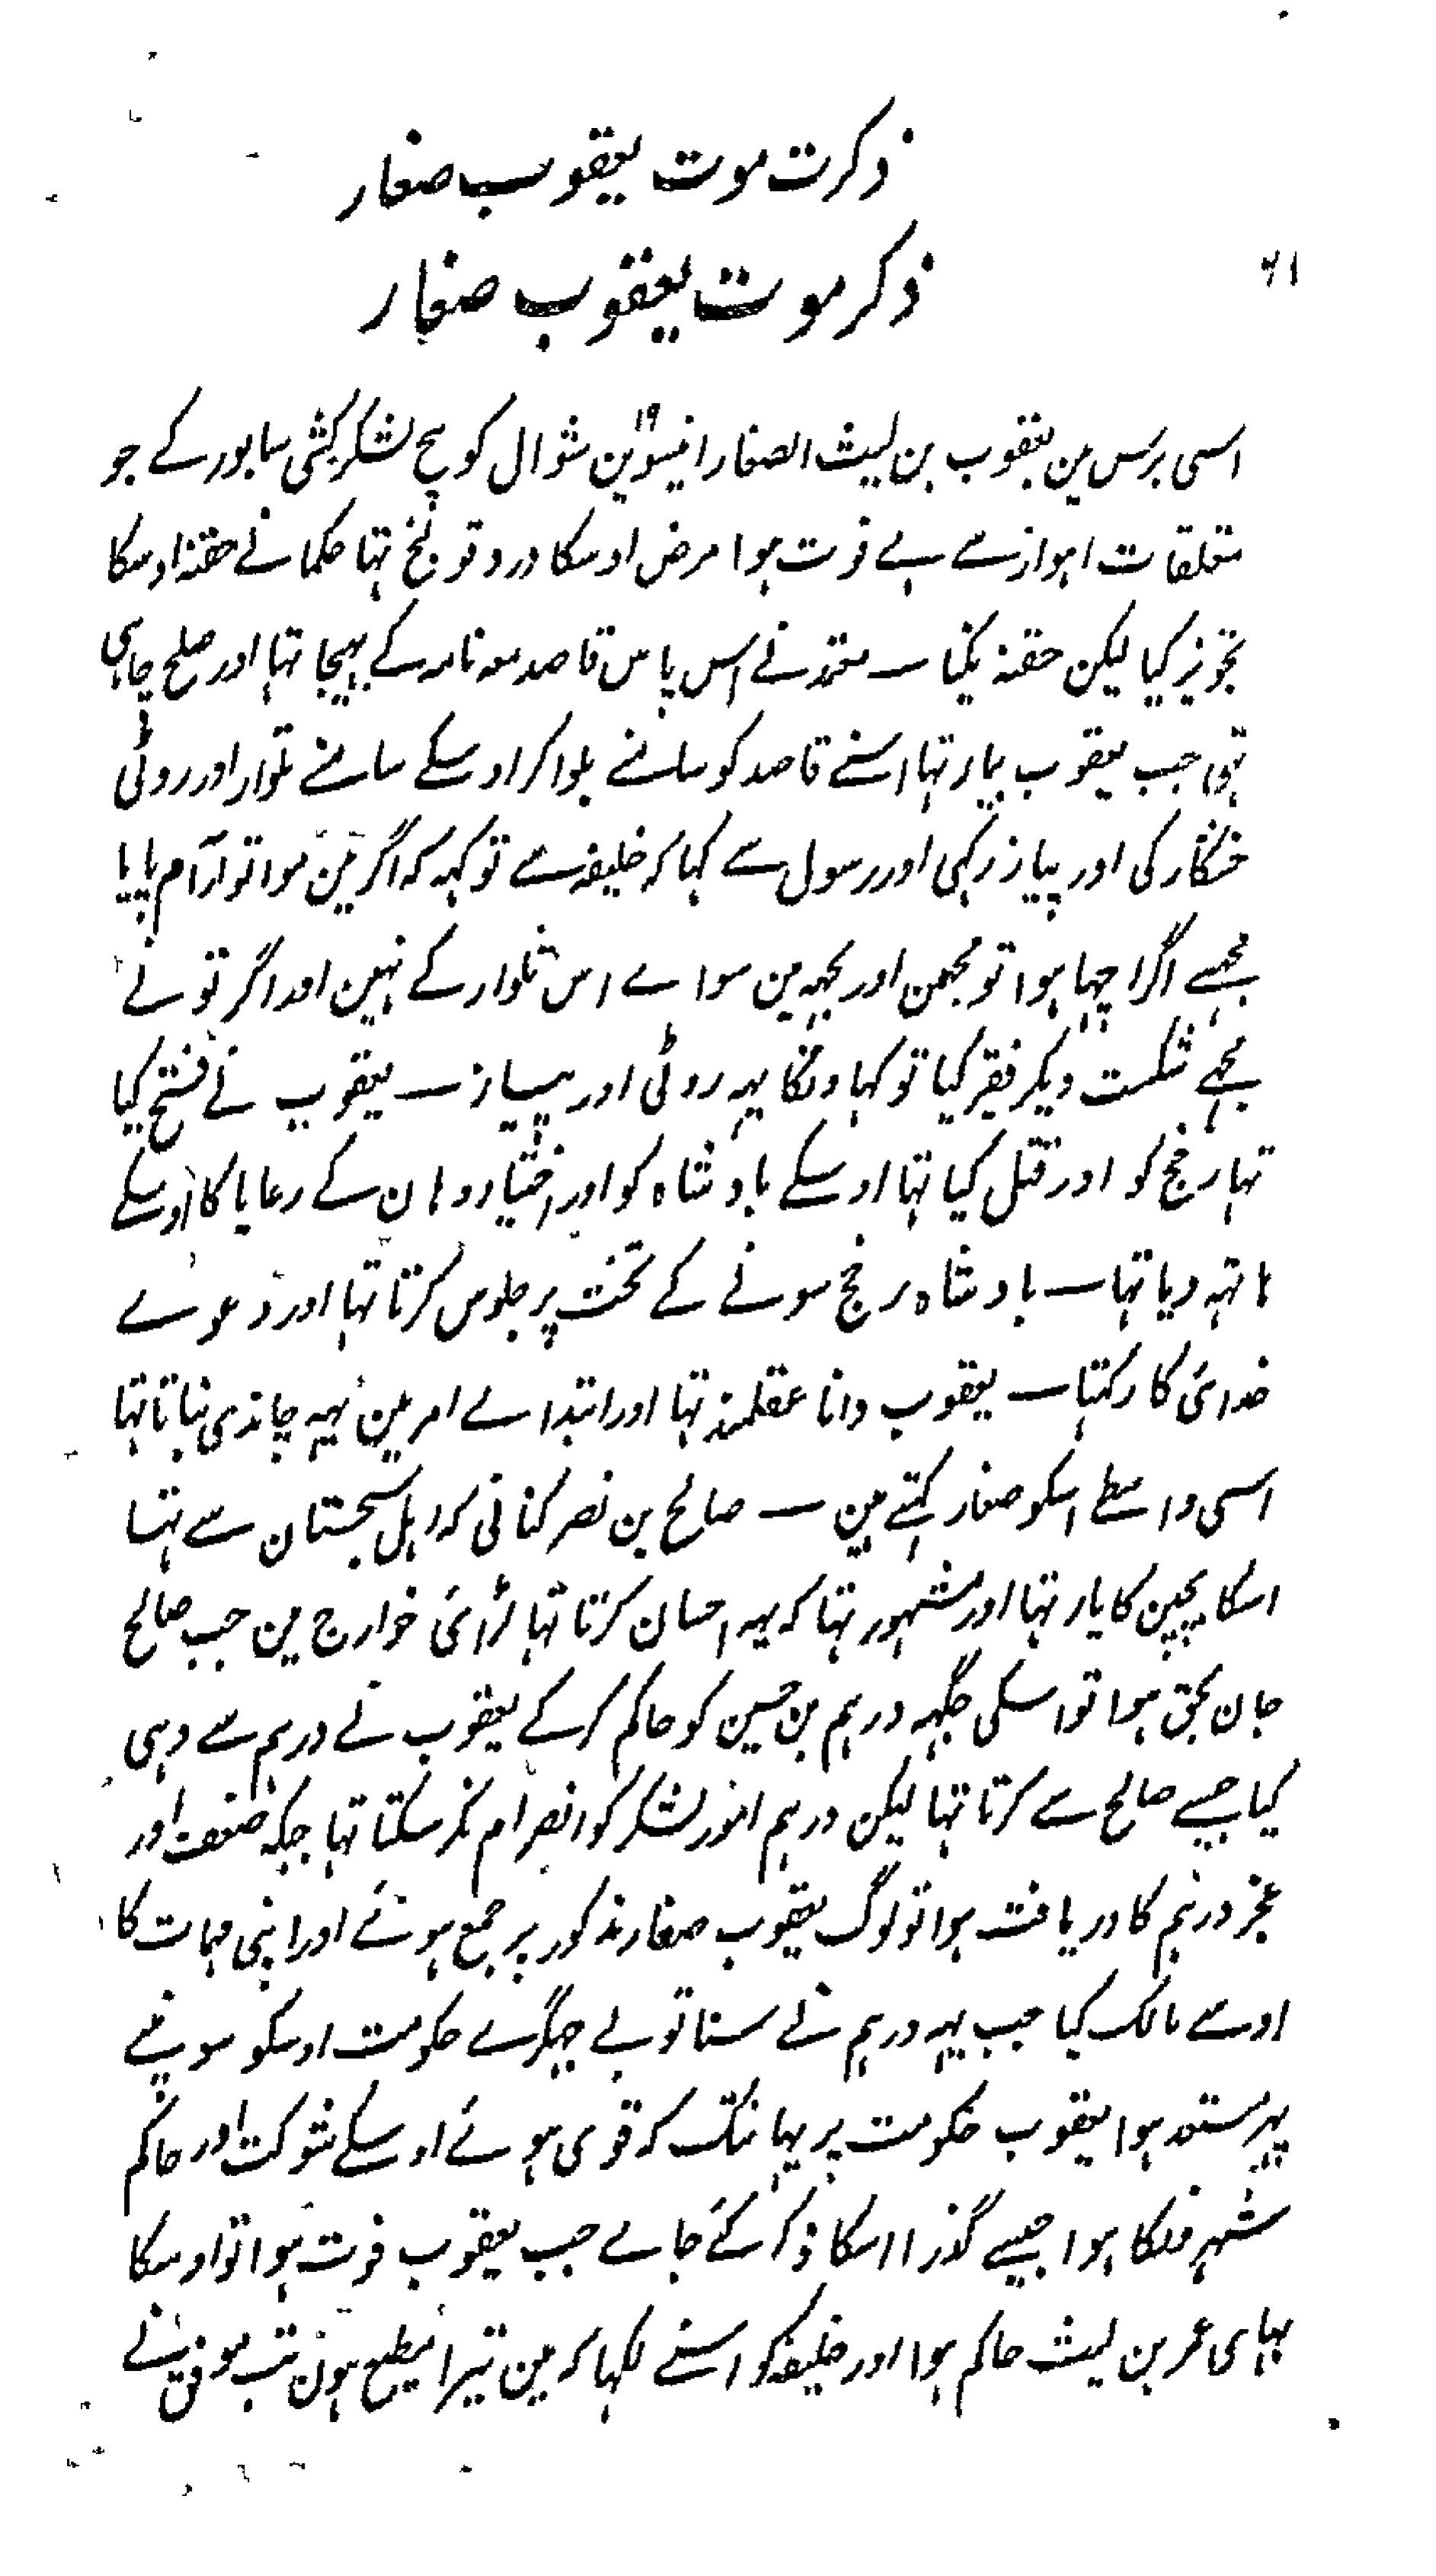 ذکرت موت یعقوب صفار
۲۱
ذکر موت یعقوب صفار
اسی برس مین یعقوب بن لیث الصفار انیسوین ۱۹ شوال کو بیچ لشکرکشی سابور کے جو
متعلقات اہواز سے ہے فوت ہوا مرض اوسکا درد قولنج تہا حکما نے حقنہ اوسکا
تجویز کیا لیکن حقنہ نکیا ــ معتمد نے اس پاس قاصد معہ نامہ کے بہیجا تہا اور صلح چاہی
تہی جب یعقوب بیمار تہا اسنے قاصد کو سامنے بلوا کر اوسکے سامنے تلوار اور روٹی
خشکار کی اور پیاز رکہی اور رسول سے کہا کہ خلیفہ سے تو کہہ کہ اگر مین موا تو آرام پایا
مجہسے اگر اچہا ہوا تو مجہمن اور تجہہ مین سواے اس تلوار کے نہین اور اگر تو نے
مجہے شکست دیکر فقیر کیا تو کہاونگا یہہ روٹی اور پیاز ــ یعقوب نے فتح کیا
تہا رخج کو اور قتل کیا تہا اوسکے بادشاہ کو اور اختیار وہان کے رعایا کا اوسکے
ہاتہہ دیا تہا ــ بادشاہ رخج سونے کے تخت پر جلوس کرتا تہا اور دعوے
خدائی کا رکہتا ــ یعقوب دانا عقلمند تہا اور ابتداے امر مین یہہ چاندی بناتا تہا
اسی واسطے اسکو صفار کہتے ہین ــ صالح بن نصر کنانی کہ اہل سجستان سے تہا
اسکا بچپن کا یار تہا اور مشہور تہا کہ یہہ احسان کرتا تہا لڑائی خوارج مین جب صالح
جان بحق ہوا تو اسکی جگہہ درہم بن حسین کو حاکم کرکے یعقوب نے درہم سے وہی
کیا جیسے صالح سے کرتا تہا لیکن درہم امور لشکر کو انصرام نکر سکتا تہا جبکہ ضعف اور
عجز درہم کا دریافت ہوا تو لوگ یعقوب صفار مذکور پر جمع ہوئے اور اپنی مہمات کا
اوسے مالک کیا جب یہہ درہم نے سنا تو بے جہگڑے حکومت اوسکو سونپے
پہر مستعد ہوا یعقوب حکومت پر یہانتک کہ قوی ہوئے اوسکے شوکت اور حاکم
شہر ملکا ہوا جیسے گذرا اسکا ذکر کئے جاے جب یعقوب فوت ہوا تو اوسکا
بہای عمر بن لیث حاکم ہوا اور خلیفہ کو اسنے لکہا کہ مین تیرا مطیع ہون تب موفق نے